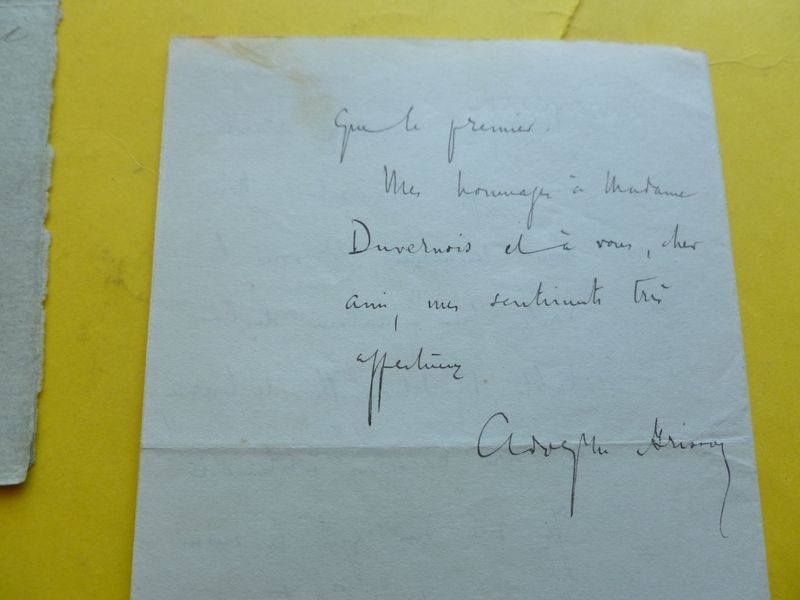 que le premier.
Mes hommages à Madame
Duvernois et à vous, cher
ami, mes sentiments très
affectueux
Adolphe Brisson